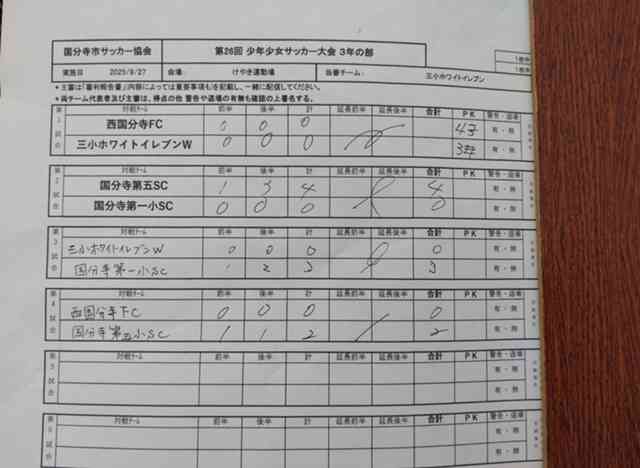 国分寺市サッカー協会 第26回 少年少女サッカー大会 3年の部
実施日 2025/9/27 会場: けやき運動場 当番チーム: 三小ホワイトイレブン
＊主審は「審判報告書」内容によっては重要事項もを記載し、一緒に配信してください。
＊両チーム代表者及び主審は、得点の他 警告や退場の有無も確認の上署名する。
第1試合 対戦チーム 前半 後半 計 延長前半 延長後半 合計 PK 警告・退場
西国分寺FC 0 0 0 有・無
三小ホワトイレブンW 0 0 0 有・無
第2試合 対戦チーム 前半 後半 計 延長前半 延長後半 合計 PK 警告・退場
国分寺第五SC 1 3 4 4 有・無
国分寺第一小SC 0 0 0 0 有・無
第3試合 対戦チーム 前半 後半 計 延長前半 延長後半 合計 PK 警告・退場
三小ホワイトイレブンW 0 0 0 0 有・無
国分寺第一小SC 1 2 3 3 有・無
第4試合 対戦チーム 前半 後半 計 延長前半 延長後半 合計 PK 警告・退場
西国分寺FC 0 0 0 0 有・無
国分寺第五小SC 1 1 2 2 有・無
第5試合 対戦チーム 前半 後半 計 延長前半 延長後半 合計 PK 警告・退場
有・無
有・無
第6試合 対戦チーム 前半 後半 計 延長前半 延長後半 合計 PK 警告・退場
有・無